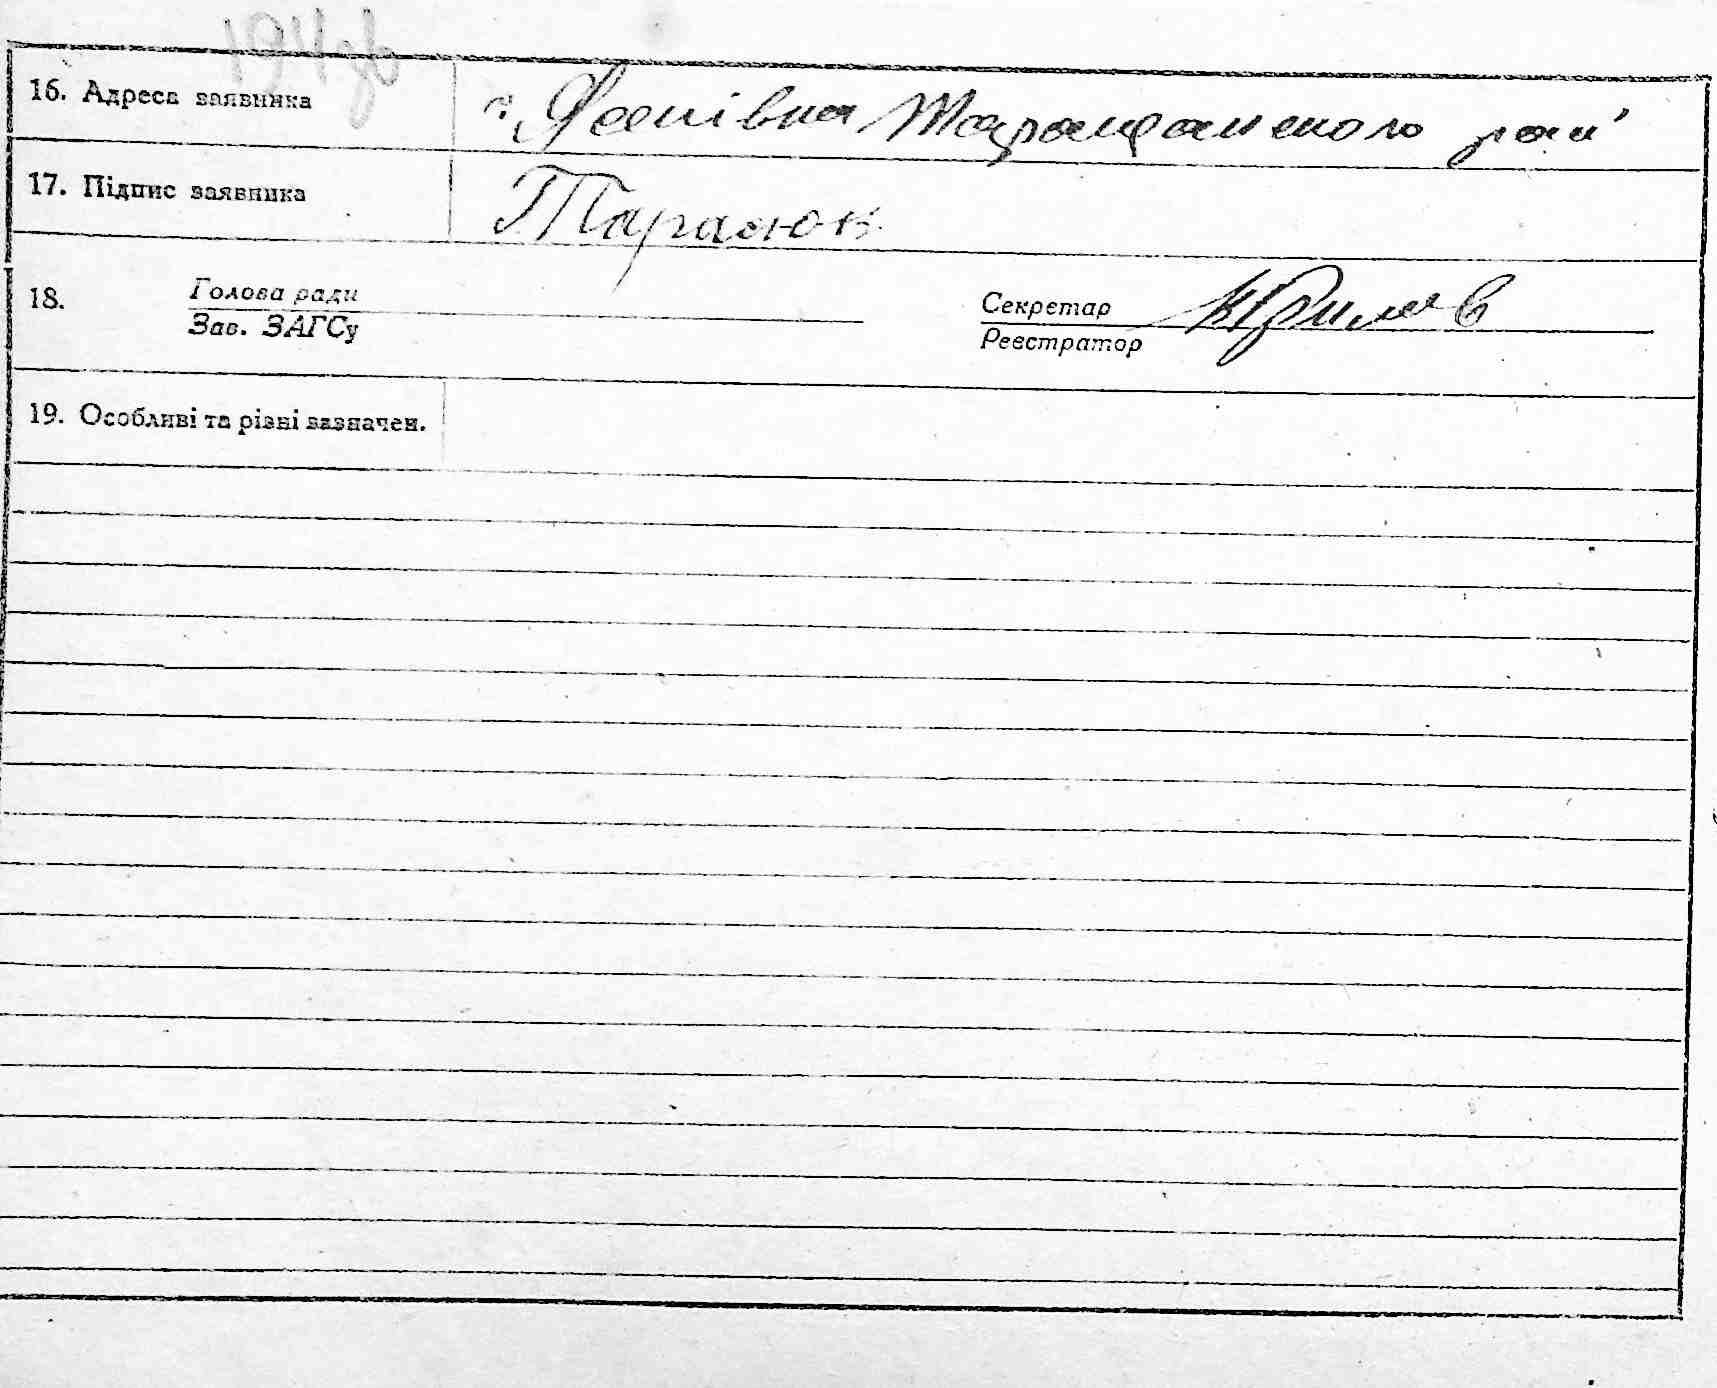 16. Адреса заявника
с. Лісівка Таращанського рай
17. Підпис заявника
Тарасюк
18. Голова ради
Зав. ЗАГСу
Секретар
Реєстратор
19. Особливі та різні зазначен.